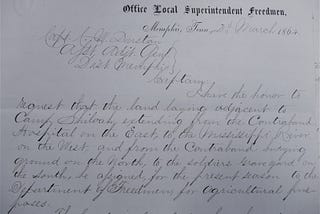 Office Local Superintendent Freedmen,
Memphis, Tenn, March 1864
Capt
Asst. Adjt. Genl
Dist Memphis
Captain,
I have the honor to
request that the land laying adjacent to
Camp Shiloah, extending from the Contraband
Hospital on the East, to the Mississippi River
on the West, and from the Contraband burying
ground on the North, to the soldiers graveyard on
the South, be assigned for the present season to the
Department of Freedmen for Agricultural pur-
poses.